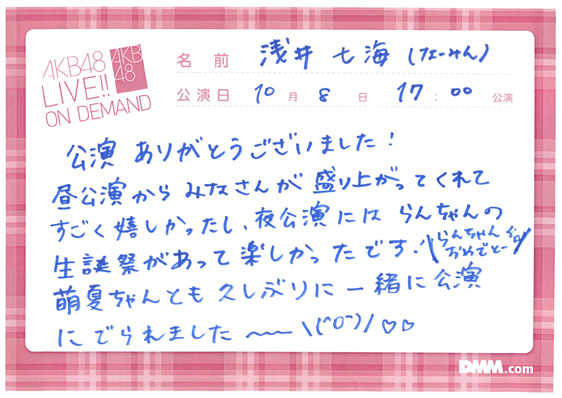 AKB48
LIVE!!
ON DEMAND
AKB
48
名前 浅井 七海 (なーみん)
公演日 10月 8日 17:00 公演
公演 ありがとうございました!
昼公演から みなさんが 盛り上がってくれて
すごく嬉しかったし、夜公演には らんちゃんの
生誕祭があって楽しかったです.
らんちゃん
おめでとー
萌夏ちゃんとも 久しぶりに 一緒に公演
に でられました 〜〜 \(^o^)/ ♡♡
DMM.com